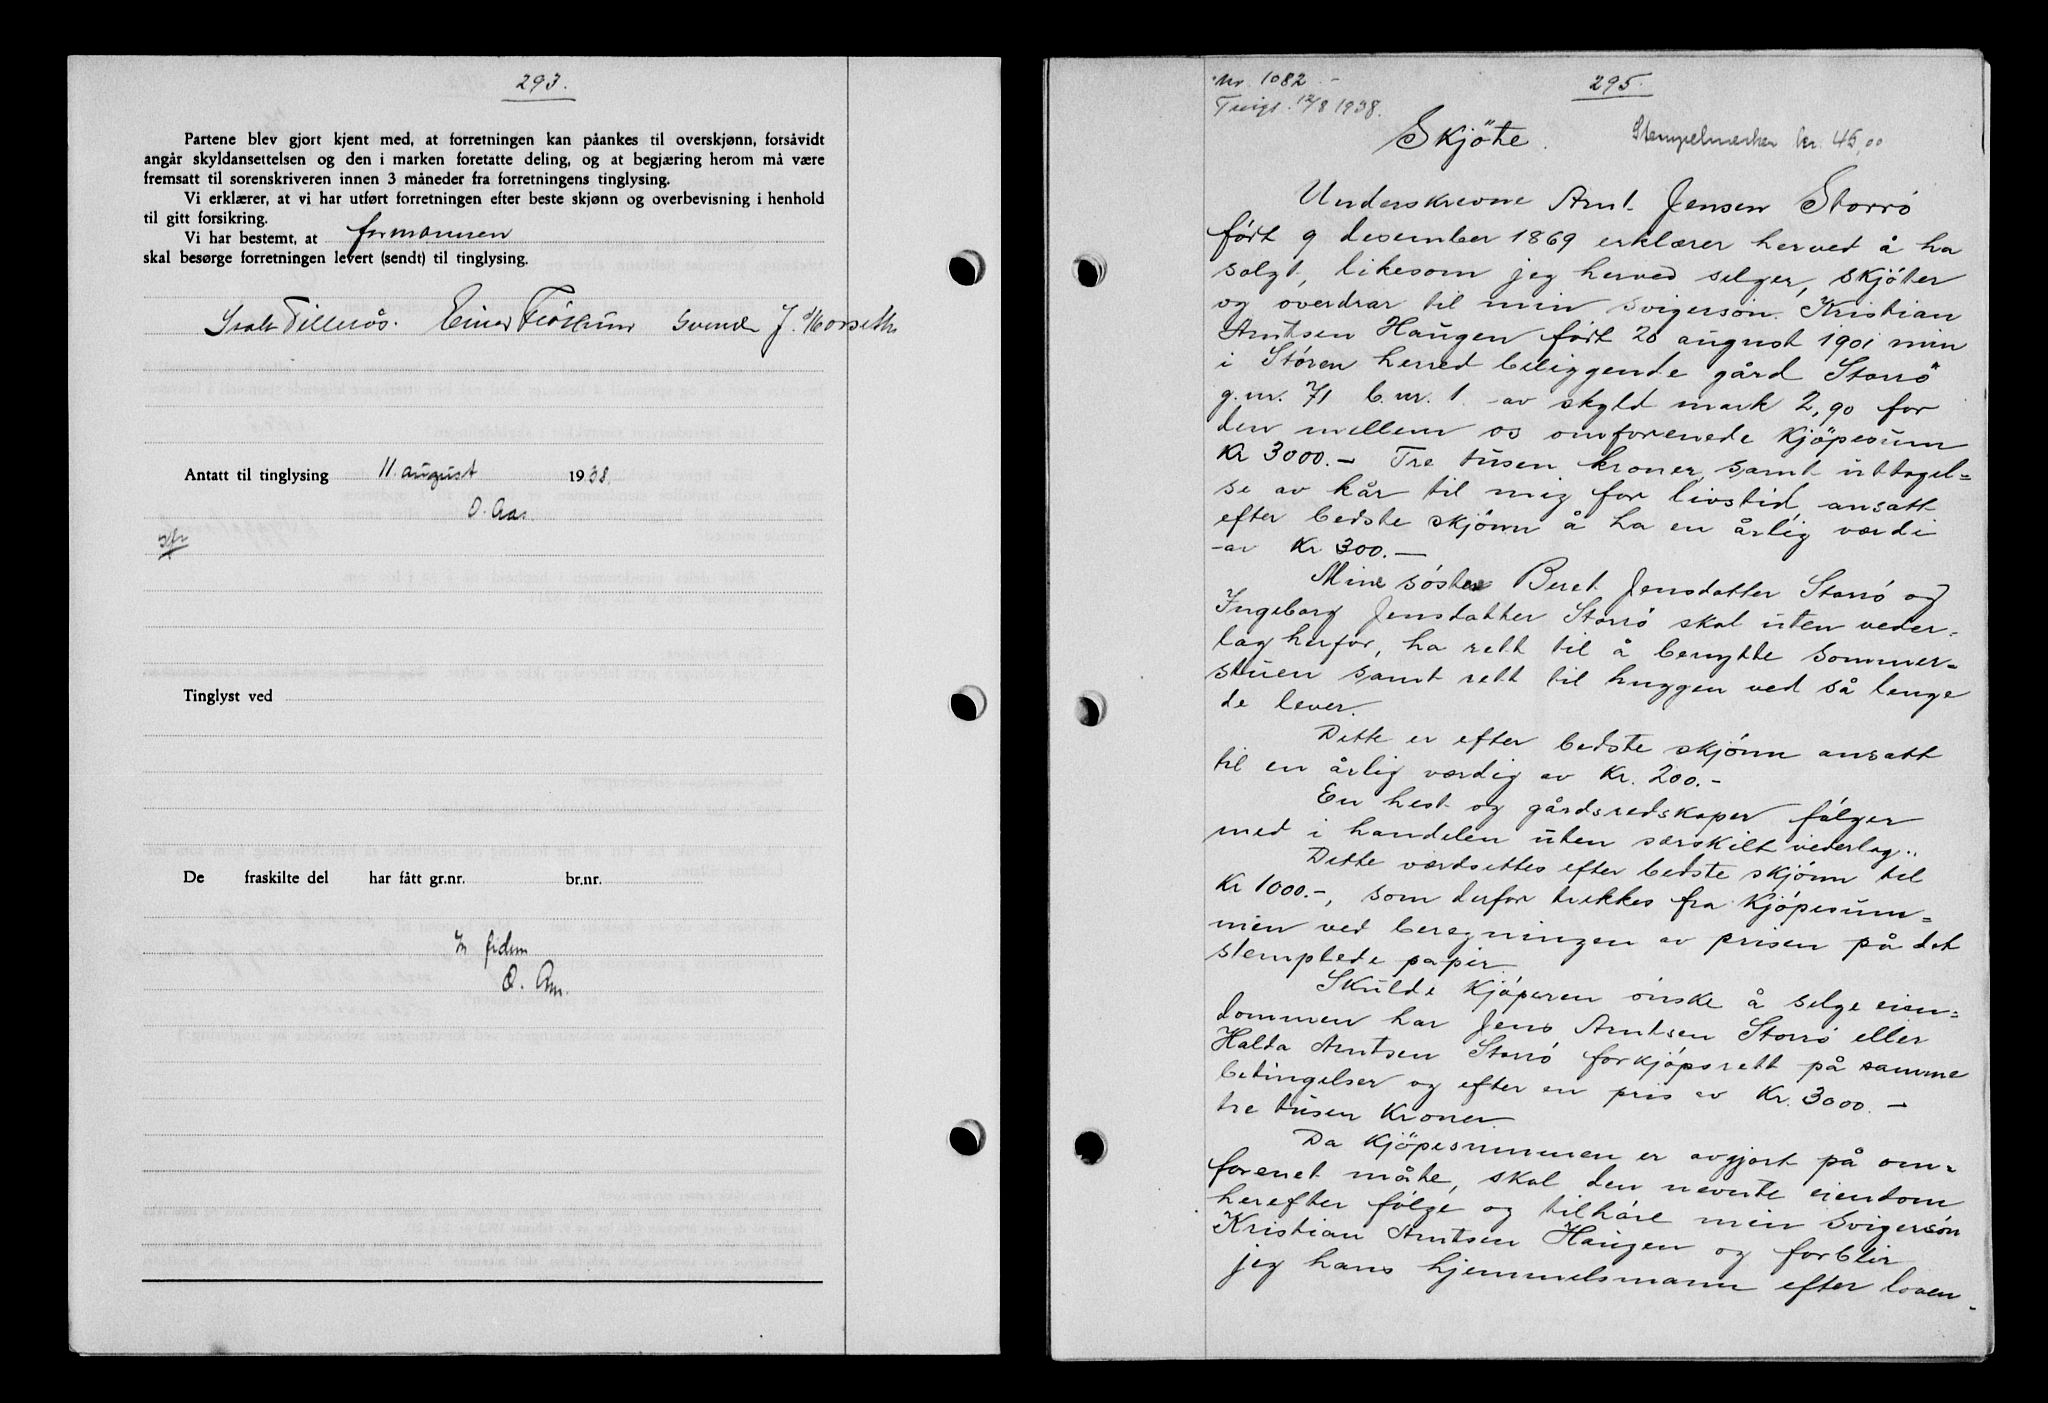 293.
Partene blev gjort kjent med, at forretningen kan påankes til overskjønn, forsåvidt
angår skyldansettelsen og den i marken foretatte deling, og at begjæring herom må være
fremsatt til sorenskriveren innen 3 måneder fra forretningens tinglysing.
Vi erklærer, at vi har utført forretningen efter beste skjønn og overbevisning i henhold
til gitt forsikring.
Vi har bestemt, at formannen
skal besørge forretningen levert (sendt) til tinglysing.
Einar J. Horseth
Antatt til tinglysing 11. august 1938.
O. Aas.
Tinglyst ved
De fraskilte del har fått gr.nr. br.nr.
In fidem
O. Aas.
Nr. 1082.-
Tingl. 12/8 1938.
295.
Skjöte. Stempelmerker kr. 45,00
Underskrevne Arnt Jensen Storrö
født 9 desember 1869 erklærer herved å ha
solgt, likesom jeg herved selger, skjöter
og overdrar til min svigersön Kristian
Arntsen Haugen født 20 august 1901 min
i Stören herred beliggende gård "Storrö"
g.nr. 71 b.nr. 1 av skyld mark 2,90 for
den mellem os omforenede kjöpesum
Kr 3000.- Tre tusen kroner, samt uttagel=
se av kår til mig for livstid, ansatt
efter bedste skjönn å ha en årlig værdi
av Kr 300.-
Mine söstre Beret Jensdatter Storrö og
Ingeborg Jensdatter Storrö skal uten veder-
lag herfor, ha rett til å benytte sommer=
stuen samt rett til huggen ved så lenge
de lever.
Dette er efter bedste skjönn ansatt
til en årlig værdig av Kr. 200.-
En hest og gårdsredskaper fölger
med i handelen uten særskilt vederlag..
Dette værdsettes efter bedste skjönn til
Kr 1000.-, som derfor trekkes fra kjöpesum=
men ved beregningen av prisen på det
stemplede papir.
Skulde kjöperen önske å selge eien=
dommen har Jens Arntsen Storrö eller
Halda Arntsen Storrö forkjöpsrett på samme
betingelser og efter en pris av Kr. 3000.-
tre tusen kroner.
Da kjöpesummen er avgjort på om-
forenet måte, skal den nevnte eiendom
herefter fölge og tilhöre min svigersön
Kristian Arntsen Haugen og forblir
jeg hans hjemmelsmann efter loven-